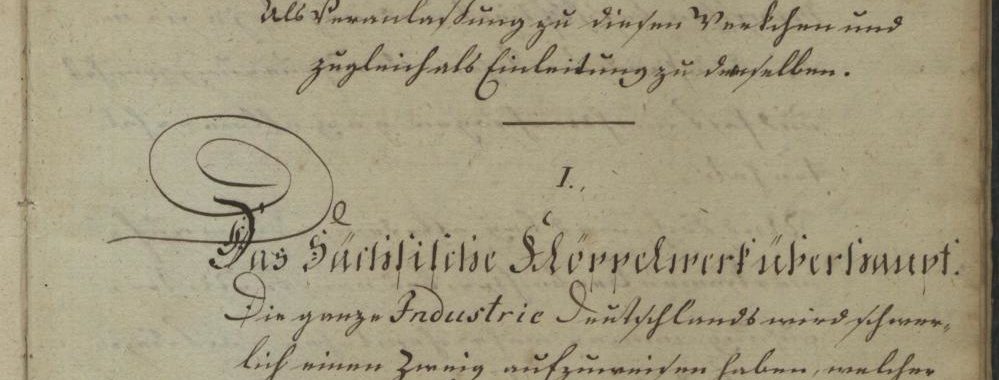 Als Veranlassung zu diesen Werkchen und
zugleich als Einleitung zu demselben.
I.
Das Sächsische Klöppelwerk überhaupt.
Die ganze Industrie Deutschlands wird schwer-
lich einen Zweig aufzuweisen haben, welcher